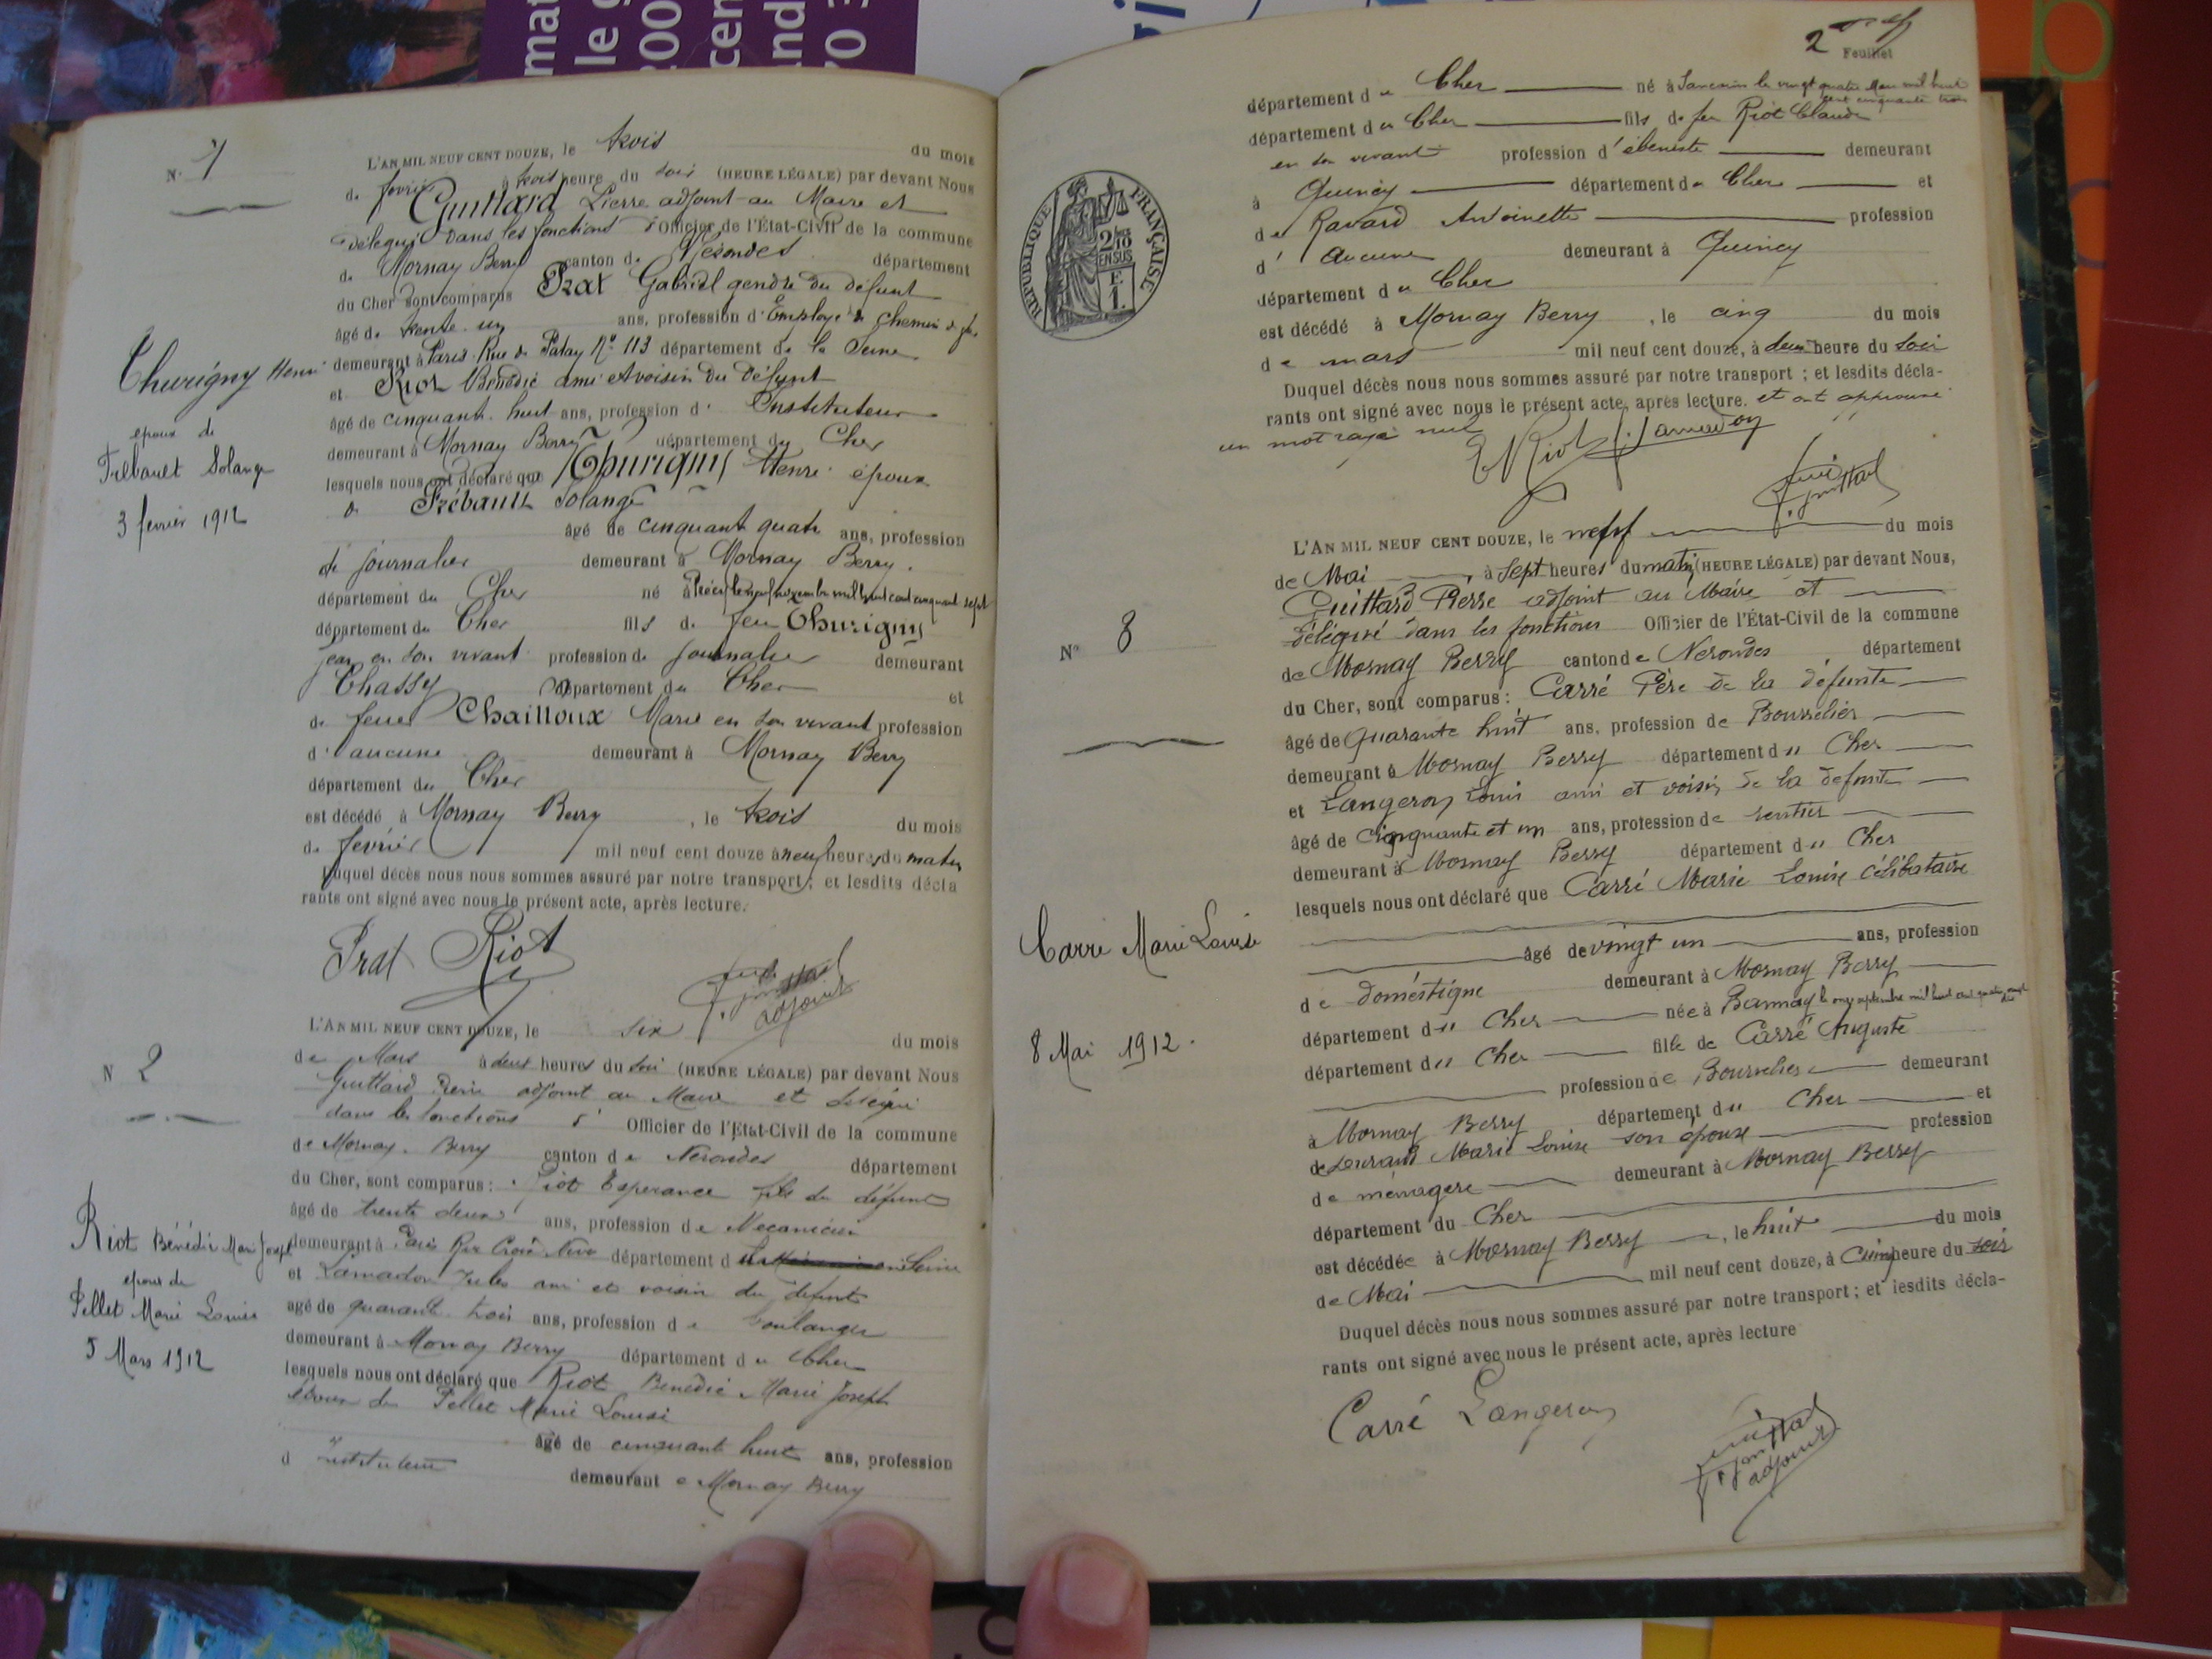 N. 1
L'AN MIL NEUF CENT DOUZE, le trois du mois
de fevrier à trois heure du soir (HEURE LÉGALE) par devant Nous
Guittard Pierre adjoint au Maire et
délégué dans les fonctions d'Officier de l'État-Civil de la commune
de Mornay Berry canton de Nérondes département
du Cher sont comparus Prat Gabriel gendre du défunt
âgé de trente un ans, profession d'Employé de Chemin de fer
demeurant à Paris Rue de Patay N° 113 département de la Seine
et Riot Bénédic ami et voisin du défunt
âgé de cinquante huit ans, profession d' Instituteur
demeurant à Mornay Berry département du Cher
lesquels nous ont déclaré que Thurigny Henri époux
de Trébault Solange
âgé de cinquant quatre ans, profession
de journalier demeurant à Mornay Berry.
département du Cher né à Précy le neuf novembre mil huit cent cinquant sept
département du Cher fils de feu Thurigny
jean en son vivant profession de journalier demeurant
Chassy département du Cher et
de feue Chailloux Marie en son vivant profession
d' aucune demeurant à Mornay Berry
département du Cher
est décédé à Mornay Berry, le trois du mois
de fevrier mil neuf cent douze à neuf heures du matin
Duquel décès nous nous sommes assuré par notre transport; et lesdits décla
rants ont signé avec nous le présent acte, après lecture.
Prat Riot
adjoint
Thurigny Henri
epoux de
Trebault Solange
3 fevrier 1912
N 2
L'AN MIL NEUF CENT DOUZE, le six du mois
de Mars à deux heures du soir (HEURE LÉGALE) par devant Nous
Guittard Pierre adjoint au Maire et délégué
dans les fonctions d' Officier de l'État-Civil de la commune
de Mornay-Berry canton de Nérondes département
du Cher, sont comparus: Riot Esperance fils du défunt
âgé de trente deux ans, profession de Mecanicien
demeurant à Paris Rue Croix Nivert département de Seine
et Lamadon Jules ami et voisin du défunt
âgé de quarante trois ans, profession de boulanger
demeurant à Mornay Berry département du Cher
lesquels nous ont déclaré que Riot Benédic Marie Joseph
époux de Pellet Marie Louise
âgé de cinquante huit ans, profession
d' Instituteur
demeurant à Mornay Berry
Riot Bénédic Marie Joseph
epoux de
Pellet Marie Louise
5 Mars 1912
2
Feuillet
département du Cher né à Sancerre le vingt quatre Mars mil huit
cent cinquante trois
département du Cher fils de feu Riot Claude
en son vivant profession d'ébeniste demeurant
à Quincy département du Cher et
de Ravard Antoinette profession
d' aucune demeurant à Quincy
département du Cher
est décédé à Mornay Berry, le cinq du mois
de mars mil neuf cent douze, à deux heure du soir
Duquel décès nous nous sommes assuré par notre transport; et lesdits décla-
rants ont signé avec nous le présent acte, après lecture. et ont approuvé
un mot rayé nul
E Riot J. Lamadon
RÉPUBLIQUE FRANÇAISE
2/10
EN SUS
E
1.
N° 8
L'AN MIL NEUF CENT DOUZE, le neuf du mois
de Mai, à Sept heures du matin (HEURE LÉGALE) par devant Nous,
Guittard Pierre adjoint au Maire et
délégué dans les fonctions Officier de l'État-Civil de la commune
de Mornay Berry canton de Nerondes département
du Cher, sont comparus: Carré Père de la défunte
âgé de Quarante huit ans, profession de Bourrelier
demeurant à Mornay Berry département du Cher
et Langeron Louis ami et voisin de la defunte
âgé de Cinquante et un ans, profession de rentier
demeurant à Mornay Berry département du Cher
lesquels nous ont déclaré que Carré Marie Louise célibataire
âgé de vingt un ans, profession
de doméstique demeurant à Mornay Berry
département du Cher née à Bannay le onze septembre mil huit cent quatre vingt dix
département du Cher fille de Carré Auguste
profession de Bourrelier demeurant
à Mornay Berry département du Cher et
de Durand Marie Louise son épouse profession
de ménagère demeurant à Mornay Berry
département du Cher
est décédée à Mornay Berry, le huit du mois
de Mai mil neuf cent douze, à Cinq heure du soir
Duquel décès nous nous sommes assuré par notre transport; et lesdits décla-
rants ont signé avec nous le présent acte, après lecture
Carré Langeron
adjoint
Carré Marie Louise
8 Mai 1912.